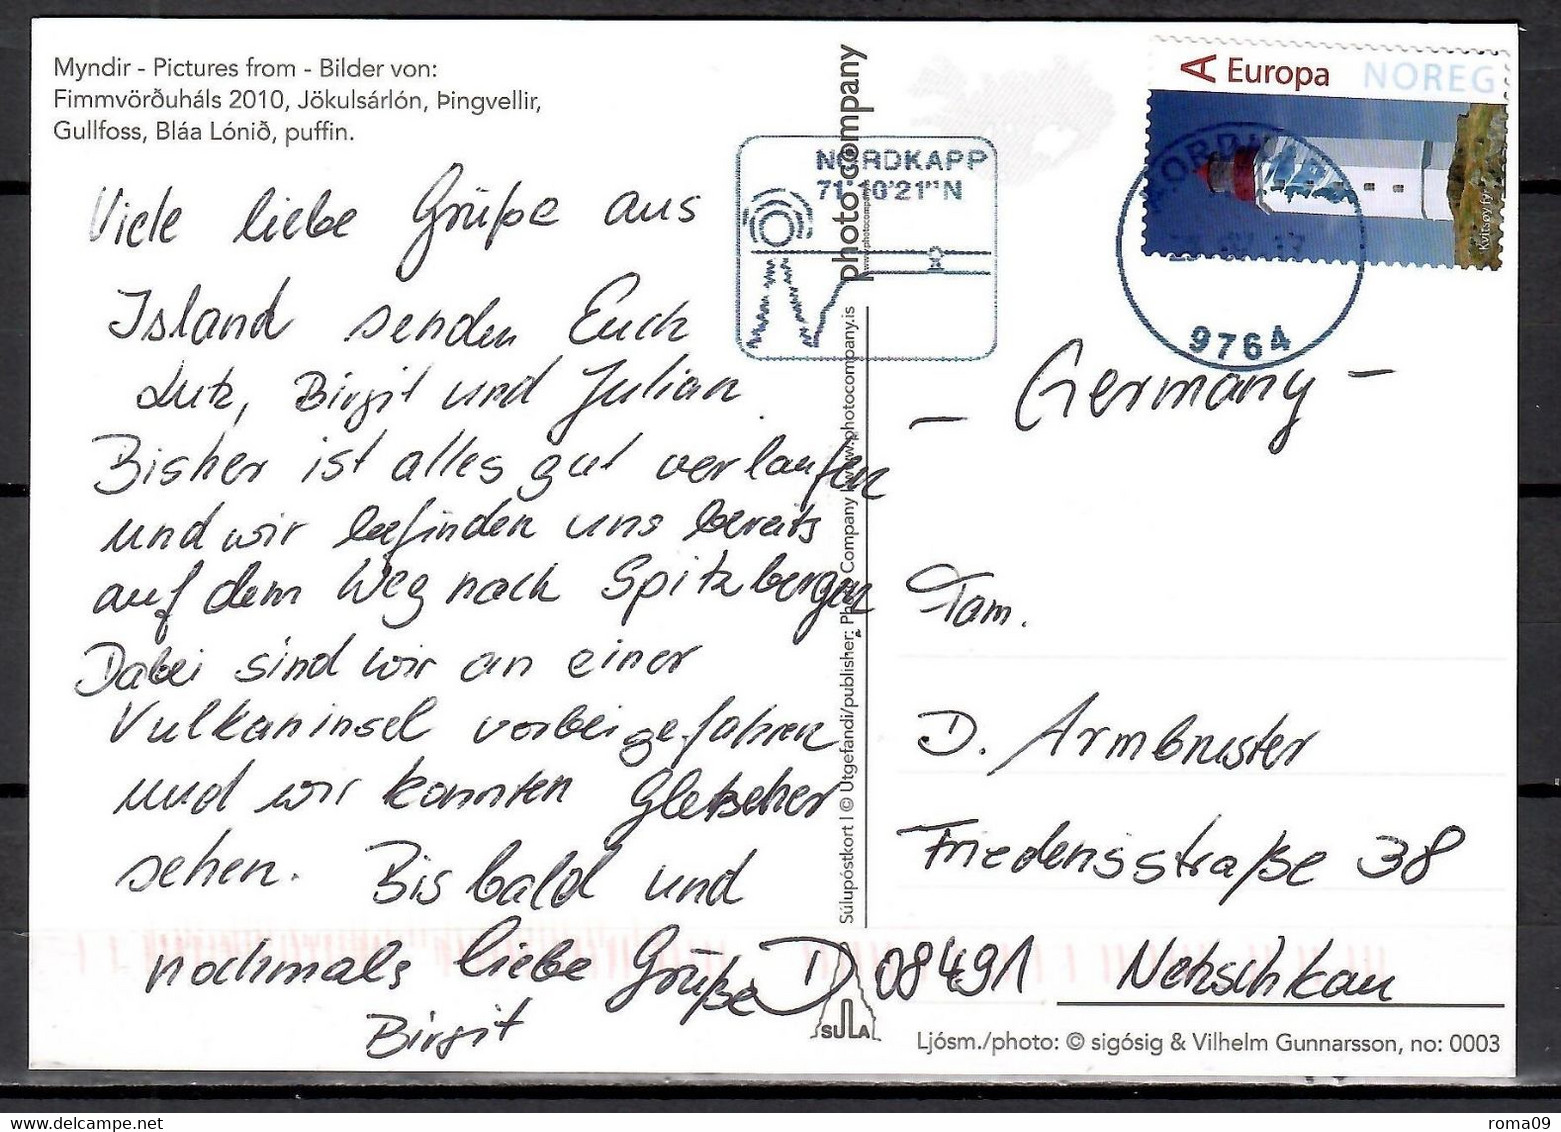 Myndir - Pictures from - Bilder von:
Fimmvörðuháls 2010, Jökulsárlón, Þingvellir,
Gullfoss, Bláa Lónið, puffin.
Viele liebe Grüße aus
Island senden Euch
Lutz, Birgit und Julian.
Bisher ist alles gut verlaufen
und wir befinden uns bereits
auf dem Weg nach Spitzbergen
Dabei sind wir an einer
Vulkaninsel vorbeigefahren
und wir konnten Gletscher
sehen. Bis bald und
nochmals liebe Grüße
Birgit
NORDKAPP
71°10'21"N
photo:company
Súlupóstkort | © Útgefandi/publisher: Photo Company | www.photocompany.is
SULA
A Europa NOREG
Kvitsøy fyr
NORDKAPP
17
9764
- Germany -
Fam.
D. Armbruster
Friedensstraße 38
D 08491 Netzschkau
Ljósm./photo: © sigósig & Vilhelm Gunnarsson, no: 0003
roma09